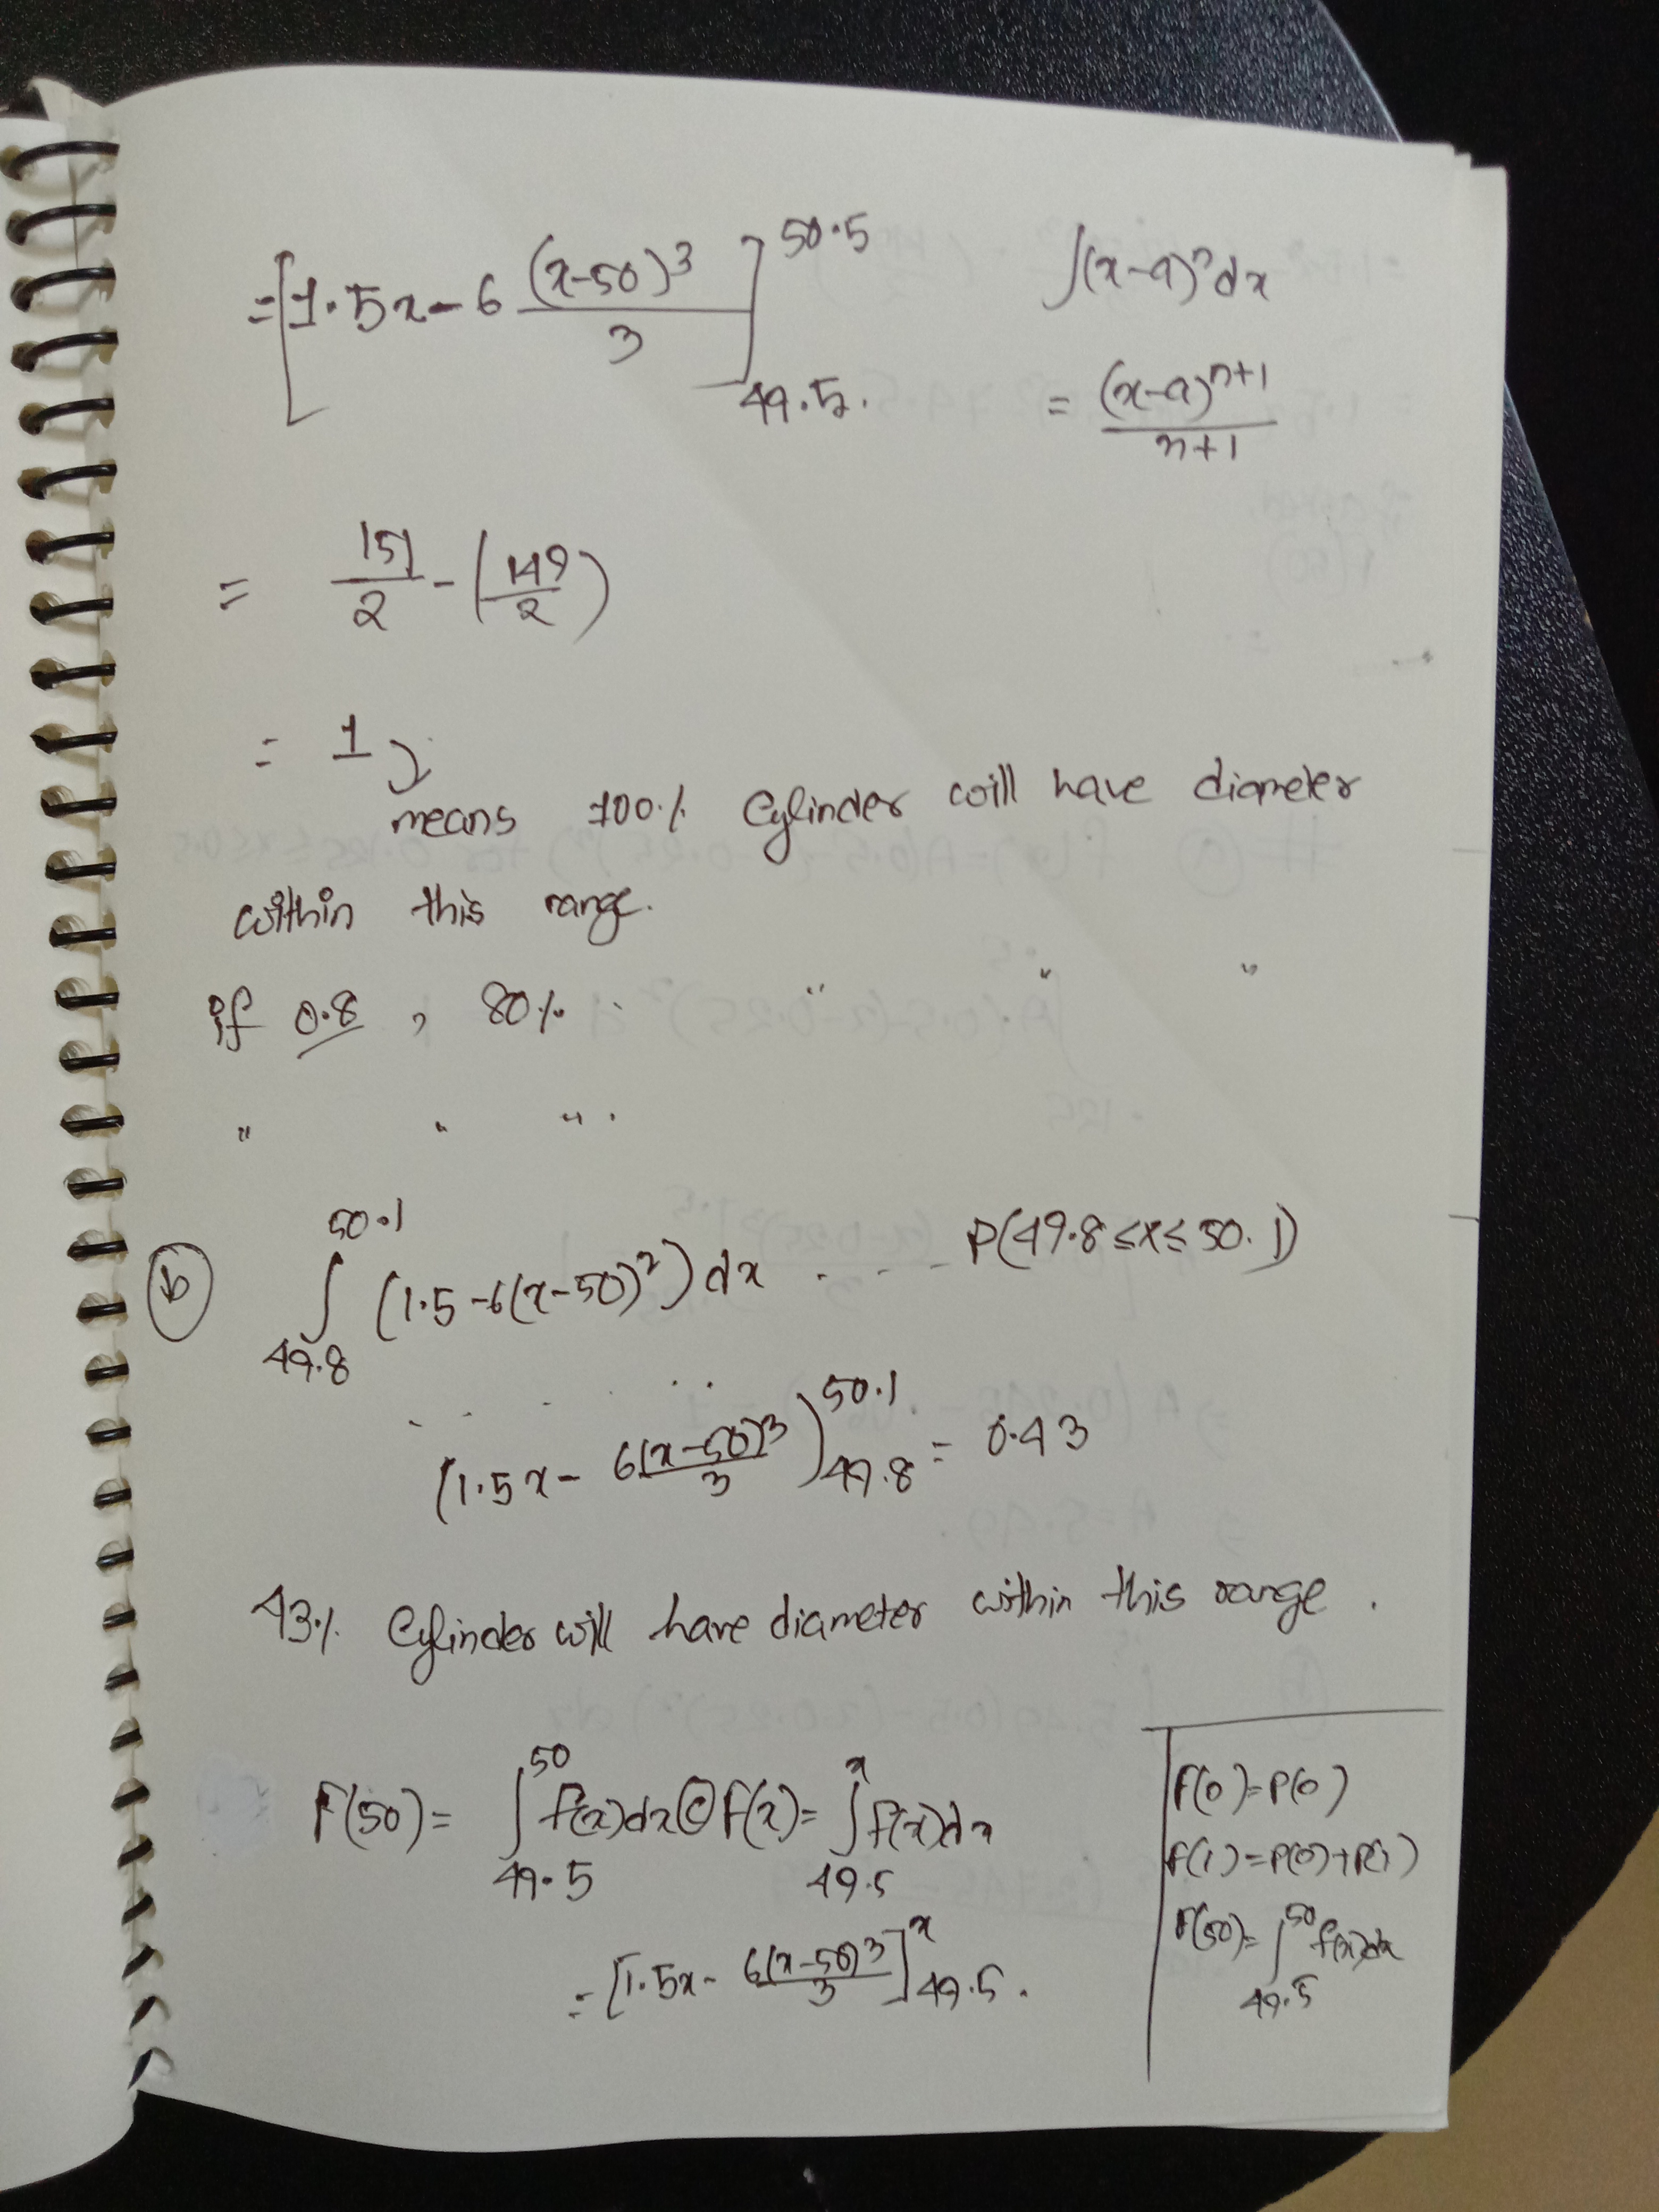 = [1.5x - 6 (x-50)³/3]₄₉.₅^50.5
∫(x-a)ⁿ dx
= (x-a)^(n+1)/(n+1)
= 151/2 - (149/2)
= 1
means 100% Cylinder will have diameter
within this range.
if 0.8 , 80% " " "
" " " .
(b) ∫₄₉.₈^50.1 (1.5-6(x-50)²) dx . - - P(49.8≤x≤50.1)
(1.5x - 6(x-50)³/3)₄₉.₈^50.1 = 0.43
43% Cylinder will have diameter within this range.
F(50) = ∫₄₉.₅^50 f(x)dx (c) F(x) = ∫₄₉.₅^x f(x)dx
= [1.5x - 6(x-50)³/3]₄₉.₅^x .
F(0)=P(0)
F(1)=P(0)+P(1)
F(50)= ∫₄₉.₅^50 f(x)dx